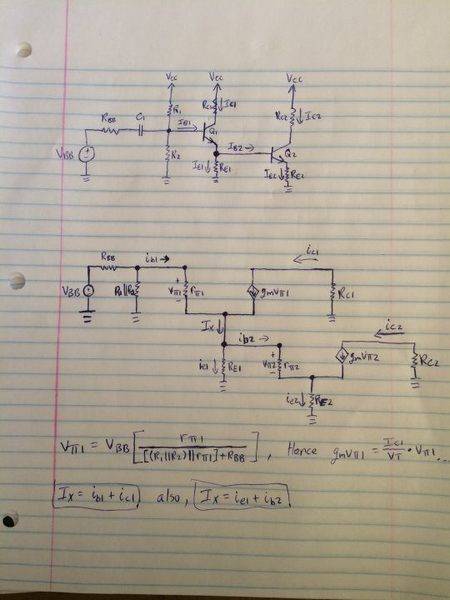 Vcc Vcc Vcc
R1 Rc1 ↓Ic1 Rc2 ↓Ic2
RBB C1 IB1→ Q1
VBB R2 IB2→ Q2
IE1↓ RE1 IE2↓ RE2
RBB ib1→ ic1←
VBB R1||R2 + Vπ1 - rπ1 gmVπ1 Rc1
Ix↓ ib2→ ic2←
ie1↓ RE1 + Vπ2 - rπ2 gmVπ2 Rc2
ie2↓ RE2
Vπ1 = VBB [ rπ1 / [(R1||R2)||rπ1]+RBB ], Hence gmVπ1 = Ic1/VT · Vπ1...
Ix = ib1 + ic1, also, Ix = ie1 + ib2